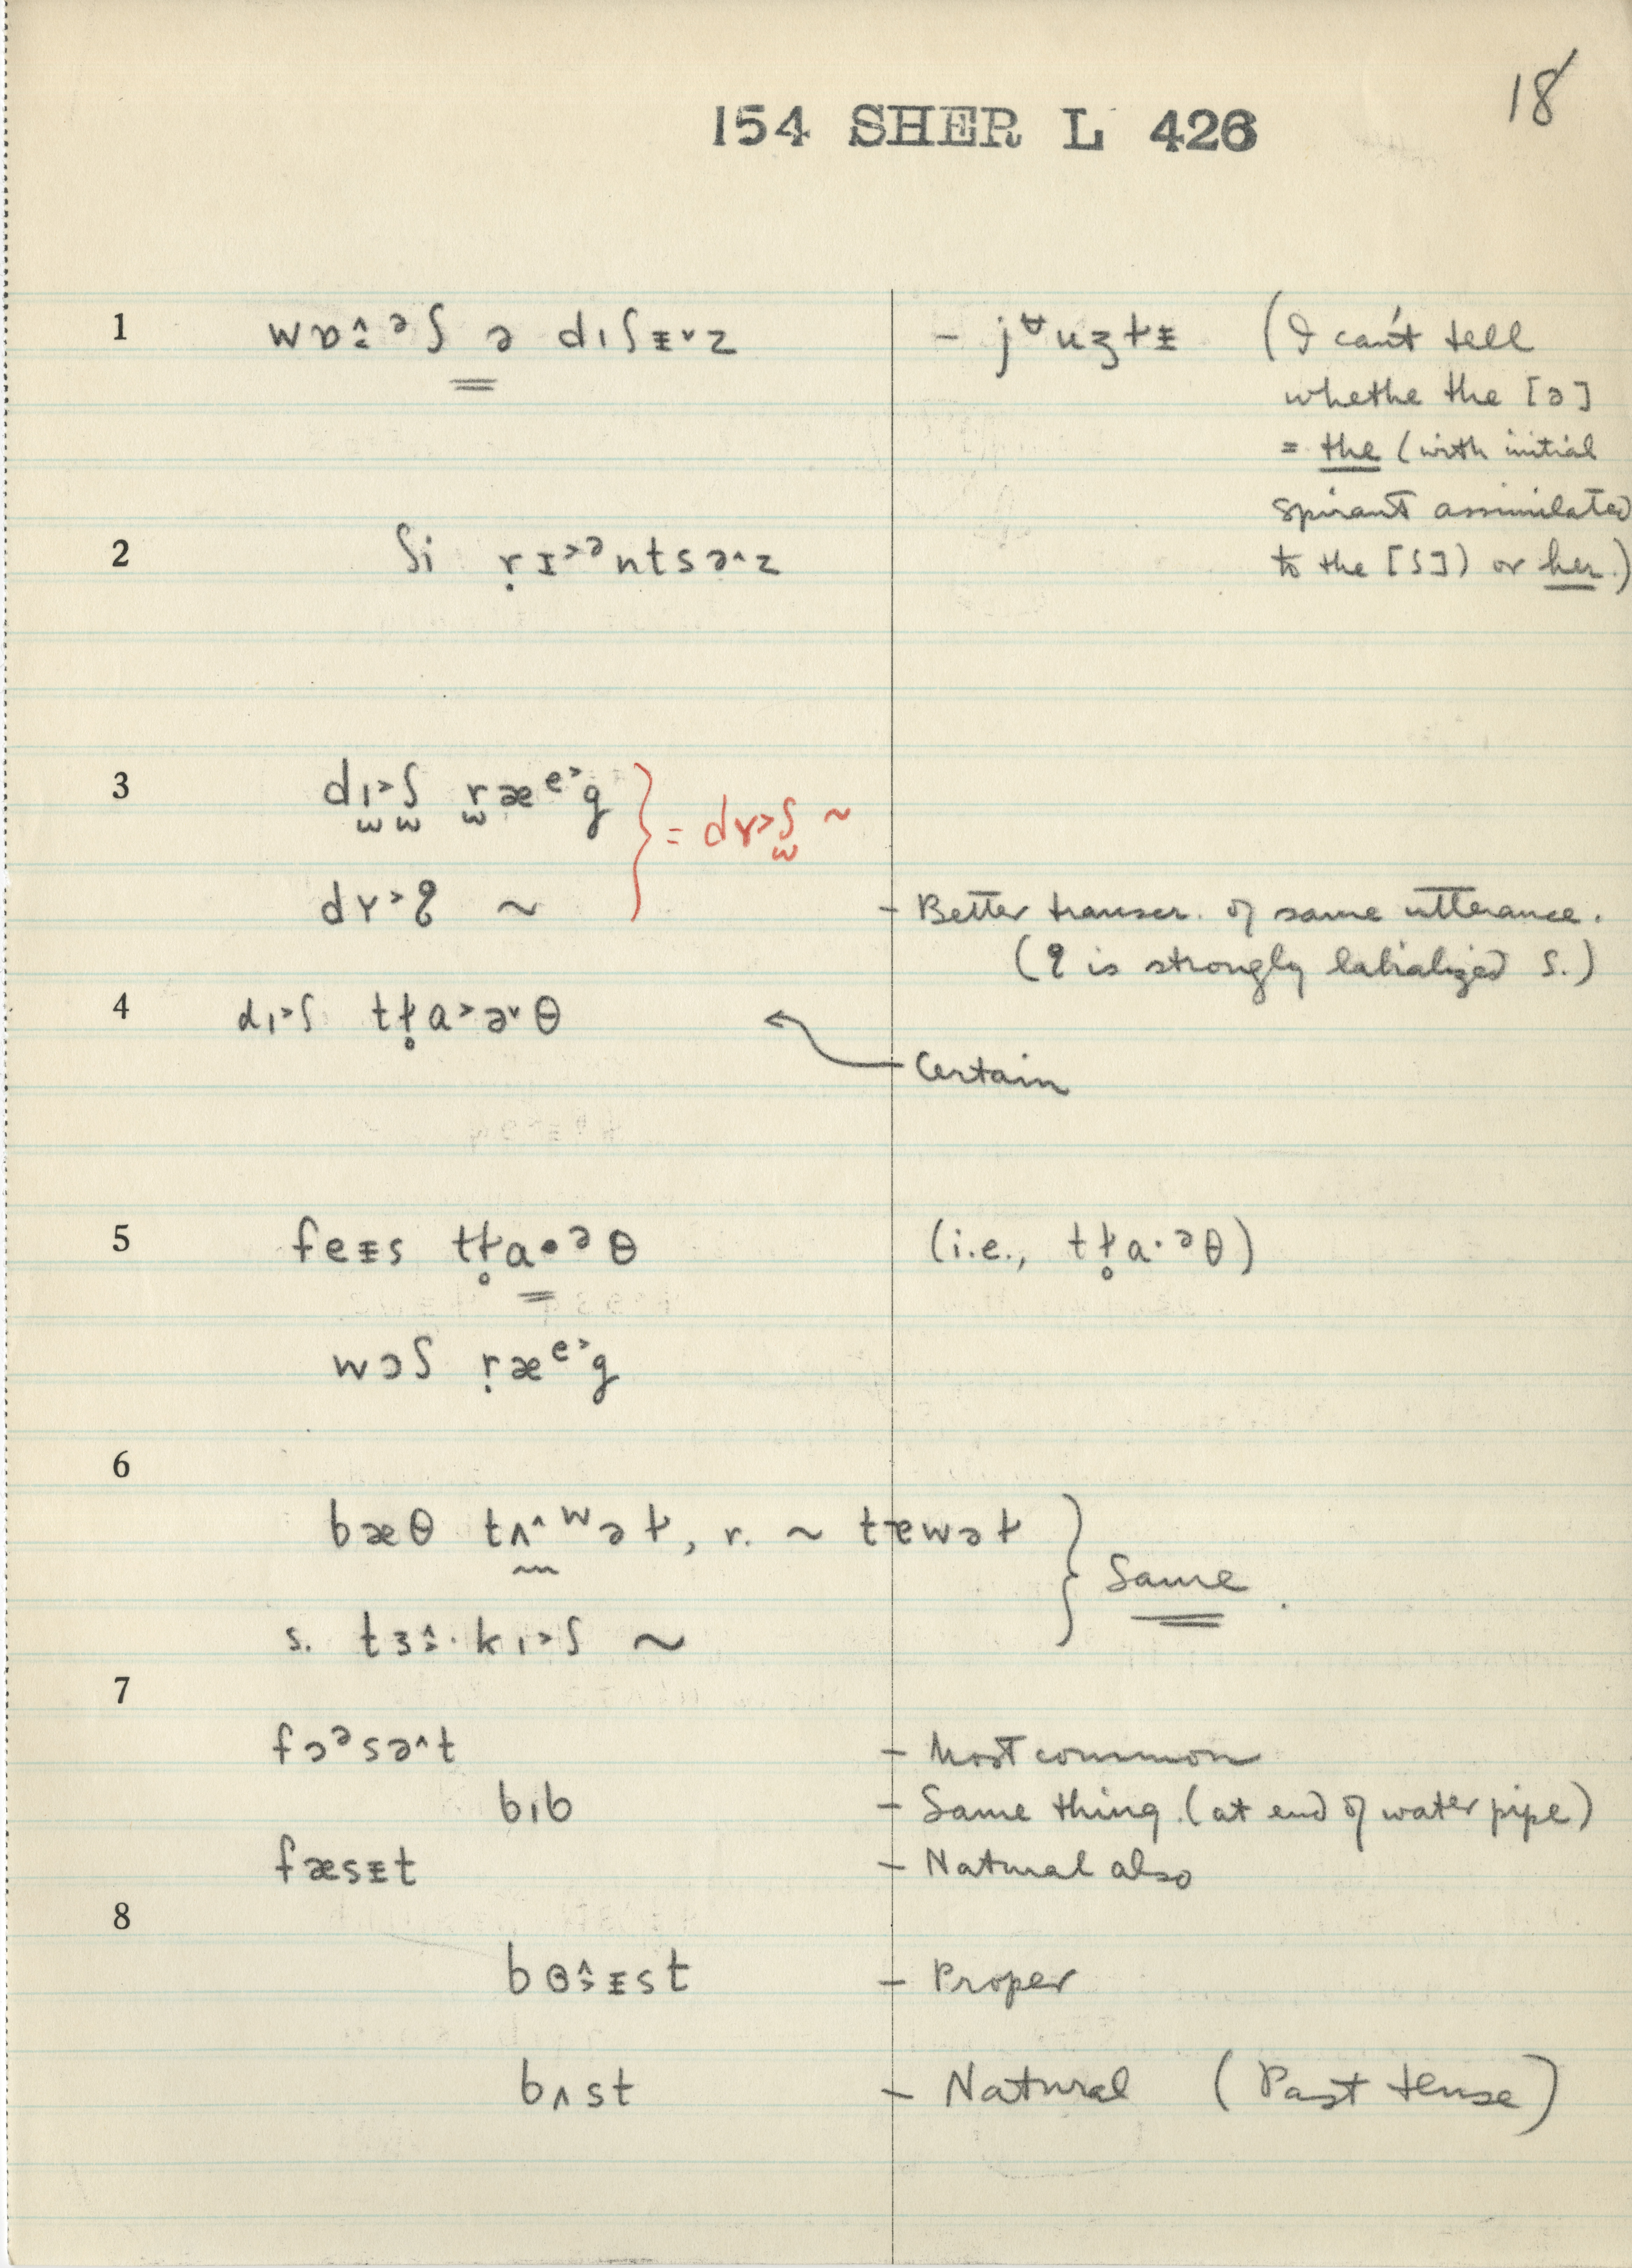 18
154 SHER L 426
1 wɒ̂ːᵊʃ ə dıʃᵻ˅z – jᶶuʒɫᵻ (I can't tell
whethe the [ə]
= the (with initial
spirant assimilated
2 ʃi ṛɪ˃ᵊntsə˄z to the [ʃ]) or her.)
3 dı˃ʃ ræᵉ˃g } = dʏ˃ʃ ~
dʏ˃ʆ ~ – Better transcr. of same utterance.
(ʆ is strongly labialized ʃ.)
4 dı˃ʃ tɫ̥a˃ə˅θ
Certain
5 feᵻs tɫ̥a•ᵊθ (i.e., tɫ̥a·ᵊθ)
wɔʃ ṛæᵉ˃g
6
bæθ tʌ˄ʷəɫ, r. ~ tɐwəɫ } Same.
s. tɜ:˄·kı˃ʃ ~
7
fɔᵊsə˄t – Most common
bıb – Same thing (at end of water pipe)
fæsᵻt – Natural also
8
bɞ˄˃ᵻst – Proper
bʌst – Natural (Past tense)